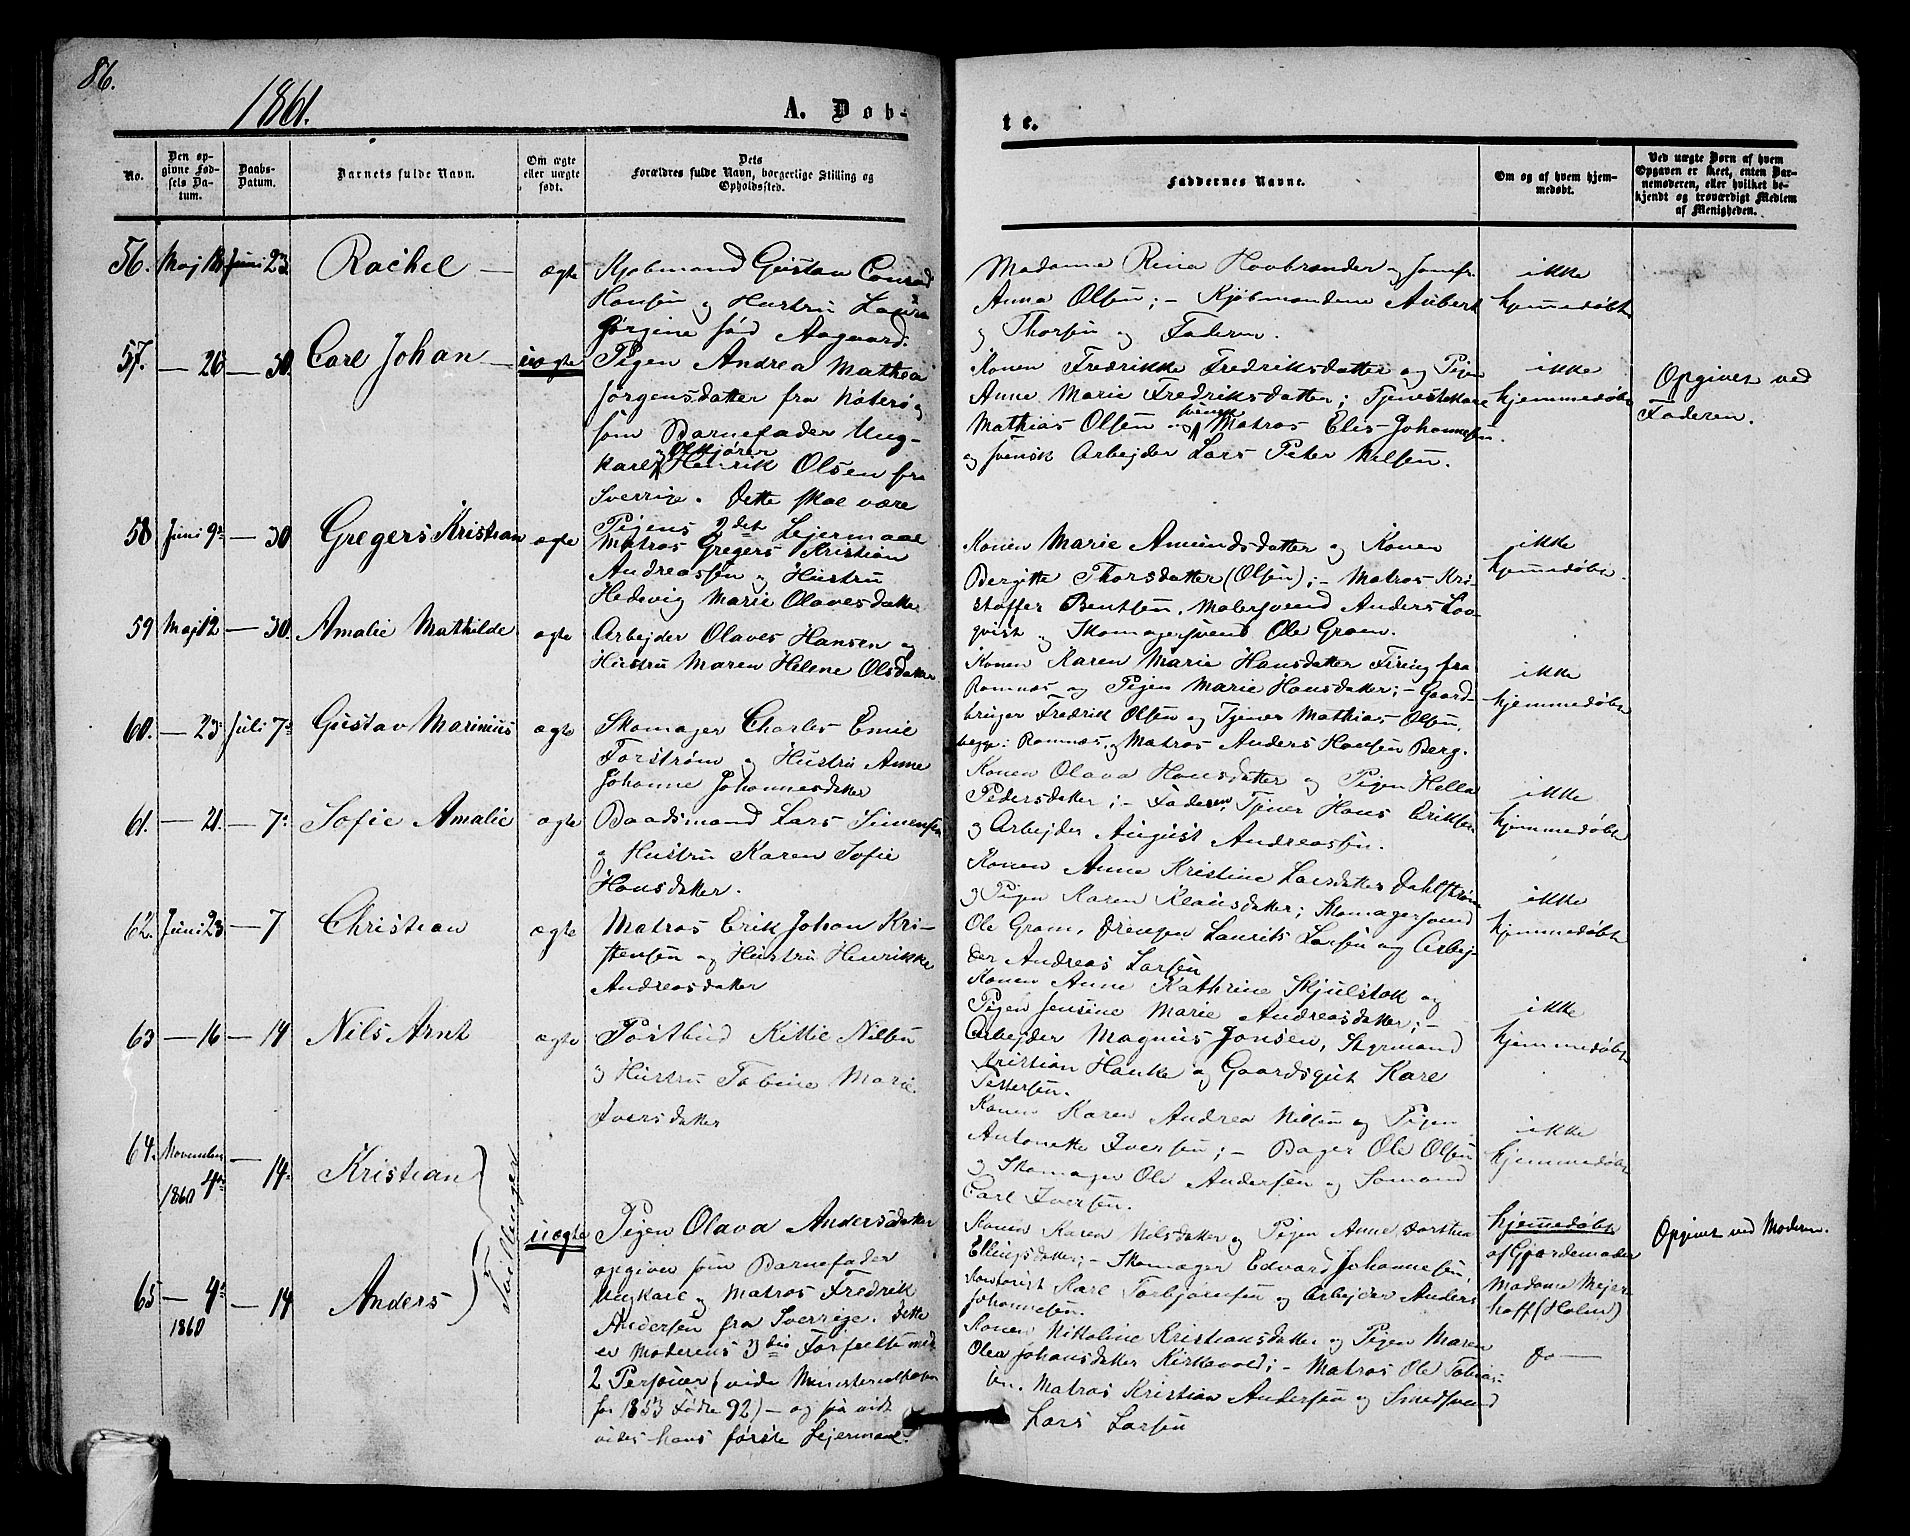 86.
1861.
A. Døb-
te.
No.
Den op-
givne Fød-
sels Da-
tum.
Daabs-
Datum.
Barnets fulde Navn.
Om ægte
eller uægte
født.
Dets
Forældres fulde Navn, borgerlige Stilling og
Opholdssted.
Faddernes Navne.
Om og af hvem hjem-
medøbt.
Ved uægte Børn af hvem
Opgaven er skeet, enten Bar-
nemoderen, eller hvilket be-
kjendt og troværdigt Medlem
af Menigheden.
56. Maj Juni 23 Rachel — ægte
Kjøbmand Gustav Conrad
Hansen og Hustru Laura
Jørgine fød Aagaard.
Madame Rina Hovbrander og Jomfr.
Anna Olsen; - Kjøbmændene Aubert
og Thorsen og Faderen.
ikke
hjemmedøbt
57. — 26 — 30. Carl Johan — uægte
Pigen Andrea Mathea
Jørgensdatter fra Nøterø,
som Barnefader Ung-
karl Henrik Olsen fra
Sverrige. Dette skal være
Pigens 2det Lejermaal
Konen Fredrikke Fredriksdatter og Pigen
Anne Marie Fredriksdatter; Tjenestekarl
Mathias Olsen og svensk Matros Elis Johannesen
og svensk Arbejder Lars Peter Nilsen.
ikke
hjemmedøbt
Opgivet ved
Faderen.
58 Juni 9de — 30 Gregers Kristian ægte
Matros Gregers Kristian
Andreassen og Hustru
Hedevig Marie Olavesdatter
Konen Marie Amundsdatter og Konen
Bergitte Thorsdatter (Olsen); - Matros Kri-
stoffer Bentsen, Malersvend Anders Lov-
qvist og Skomagersvend Ole Gram.
ikke
hjemmedøbt.
59 Maj 12 — 30. Amalie Mathilde ægte
Arbejder Olaves Hansen og
Hustru Maren Helene Olsdatter
Konen Karen Marie Hansdatter Firing fra
Ramnæs og Pigen Marie Hansdatter; - Gaard-
bruger Fredrik Olsen og Tjener Mathias Olsen,
begge i Ramnæs, og Matros Anders Hansen Berg.
ikke
hjemmedøbt
60. — 23 Juli 7de Gustav Marinius ægte
Skomager Charles Emil
Forstrøm og Hustru Anne
Johanne Johannesdatter
Konen Olava Hansdatter og Pigen Hella
Pedersdatter; - Faderen, Tjener Hans Eriksen
og Arbejder August Andreassen.
ikke
hjemmedøbt
61. — 21. — 7de Sofie Amalie ægte
Baadsmand Lars Simensen
og Hustru Karen Sofie
Hansdatter.
Konen Anne Kristine Larsdatter Dahlstrøm
og Pigen Karen Klausdatter; Skomagersvend
Ole Gram, Drengen Laurits Larsen og Arbej-
der Andreas Larsen
ikke
hjemmedøbt
62. Juni 23 — 7 Christian ægte
Matros Erik Johan Kri-
stensen og Hustru Henrikke
Andreasdatter
Konen Anne Kathrine Skjulstok og
Pigen Jensine Marie Andreasdatter; -
Arbejder Magnus Jonsen, Styrmand
Kristian Hanke og Gaardsgut Karl
Pettersen.
ikke
hjemmedøbt
63 — 16 — 14 Nils Arnt ægte
Postbud Kittil Nilsen
og Hustru Tobine Marie
Iversdatter
Konen Karen Andrea Nilsen og Pigen
Antonette Iversen; - Bager Ole Olsen
og Skomager Ole Andersen og Sømand
Carl Iversen.
ikke
hjemmedøbt
64. November
1860 4de — 14. Kristian
Tvillinger
uægte
Pigen Olava Andersdatter
opgiver som Barnefader
Ungkarl og Matros Fredrik
Andersen fra Sverrige. Dette
er Moderens 3die Forseelse med
2 Personer (vide Ministerialbogen
for 1853 Fødte 92) — og saa vidt
vides hans første Lejermaal.
Konen Karen Nilsdatter og Pigen Anne Dorthea
Ellingsdatter; - Skomager Edvard Johannesen,
Karl Torbjørnsen og Arbejder Anders
Johannesen.
hjemmedøbt
af Gjordemoder
Madame Mejer
hoff (Holm)
Opgivet ved Moderen.
65 — 4de
1860 — 14 Anders
Konen Nikoline Kristiansdatter og Pigen Maren
Olea Johansdatter Kirkevold; - Matros Ole Tobias-
sen. Matros Kristian Andersen og Smedsvend
Lars Larsen
do —